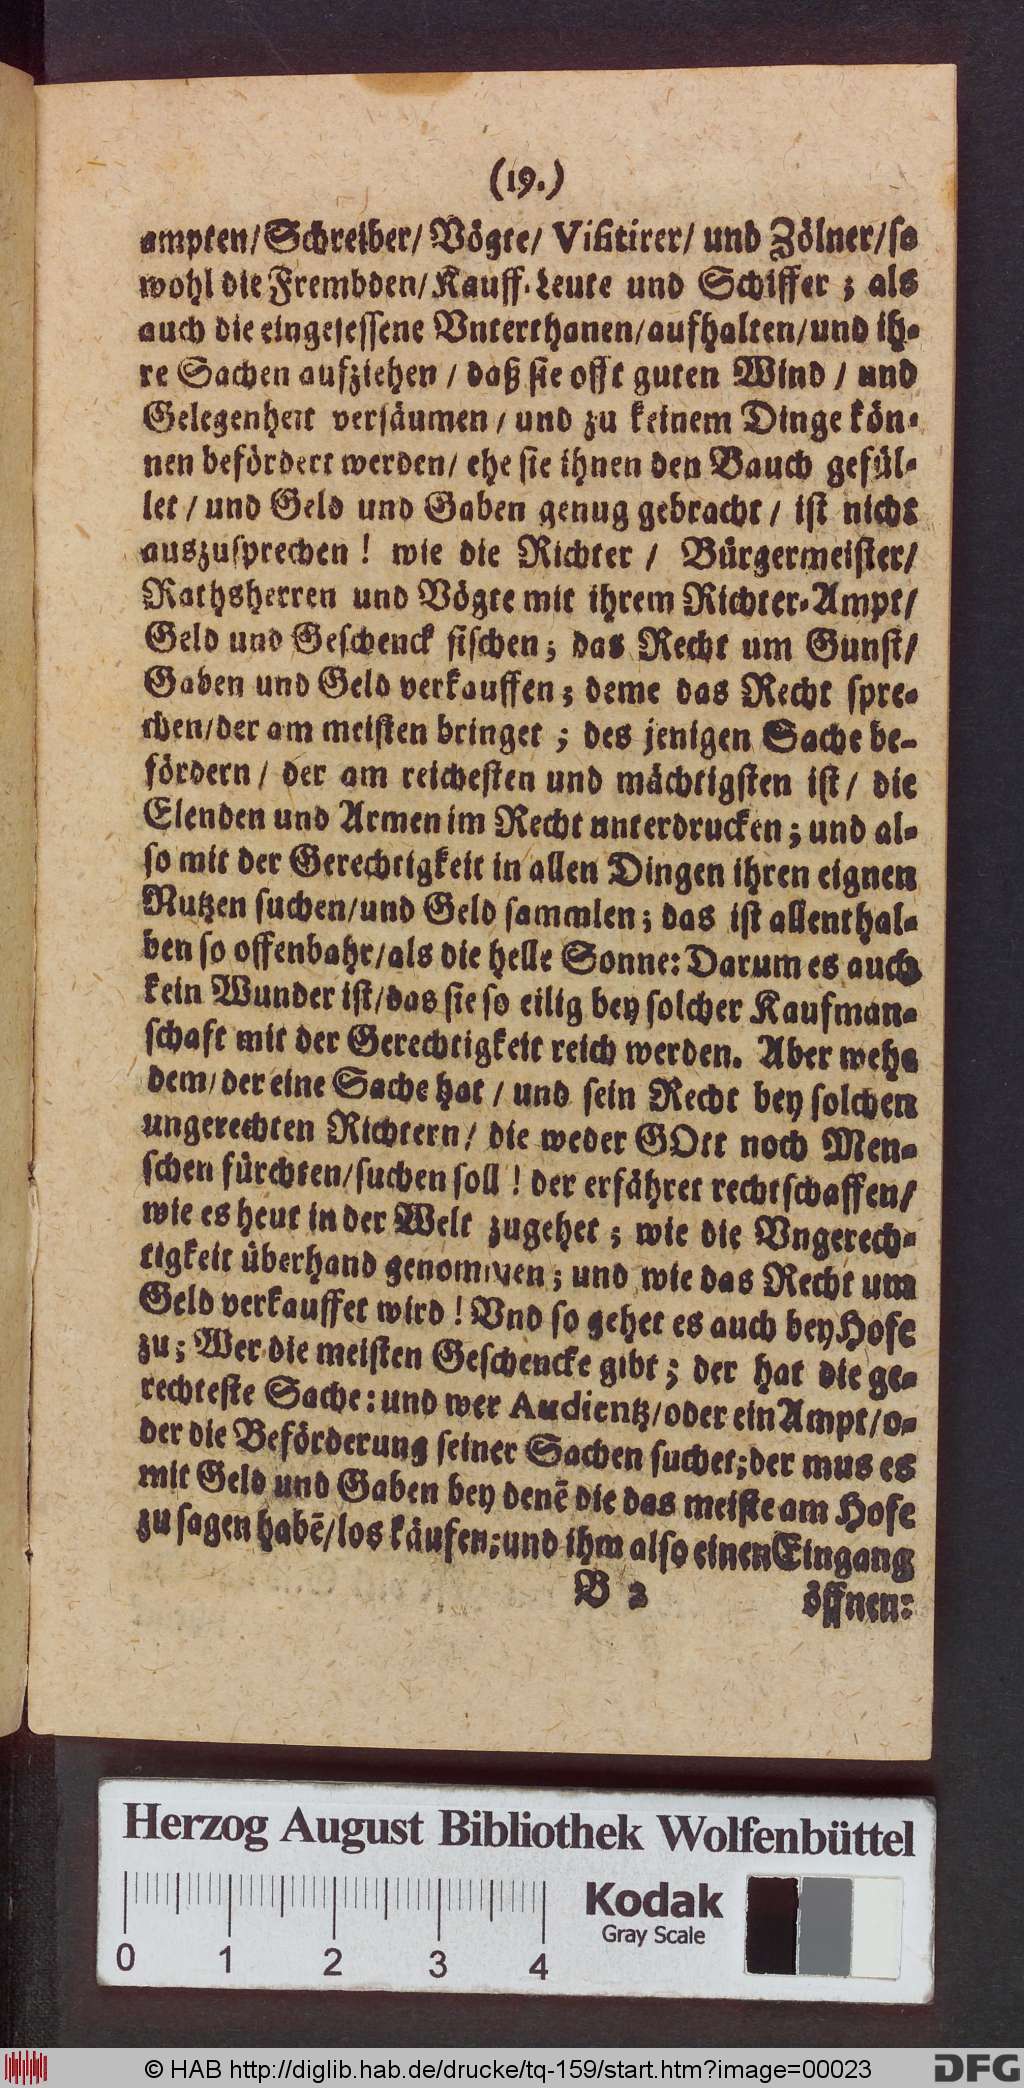 (19.)
ampten/ Schreiber/ Vögte/ Visitirer/ und Zölner/ so
wohl die Frembden/ Kauff-Leute und Schiffer ; als
auch die eingesessene Vnterthanen/ aufhalten/ und ih-
re Sachen aufziehen / daß sie offt guten Wind / und
Gelegenheit versäumen / und zu keinem Dinge kön-
nen befördert werden/ ehe sie ihnen den Bauch gefül-
let / und Geld und Gaben genug gebracht / ist nicht
auszusprechen ! wie die Richter / Bürgermeister/
Rathsherren und Vögte mit ihrem Richter-Ampt/
Geld und Geschenck fischen ; das Recht um Gunst/
Gaben und Geld verkauffen ; deme das Recht spre-
chen/ der am meisten bringet ; des jenigen Sache be-
fördern / der am reichesten und mächtigsten ist / die
Elenden und Armen im Recht unterdrucken ; und al-
so mit der Gerechtigkeit in allen Dingen ihren eignen
Nutzen suchen/ und Geld sammlen ; das ist allenthal-
ben so offenbahr/ als die helle Sonne: Darum es auch
kein Wunder ist/ das sie so eilig bey solcher Kaufman-
schaft mit der Gerechtigkeit reich werden. Aber wehe
dem/ der eine Sache hat / und sein Recht bey solchen
ungerechten Richtern/ die weder GOtt noch Men-
schen fürchten/ suchen soll ! der erfähret rechtschaffen/
wie es heut in der Welt zugehet ; wie die Vngerech-
tigkeit überhand genommen ; und wie das Recht um
Geld verkauffet wird ! Vnd so gehet es auch bey Hofe
zu ; Wer die meisten Geschencke gibt ; der hat die ge-
rechteste Sache : und wer Audientz/ oder ein Ampt/ o-
der die Beförderung seiner Sachen suchet; der mus es
mit Geld und Gaben bey denē die das meiste am Hofe
zu sagen habē/ los käufen; und ihm also einen Eingang
B 3 öffnen:
Herzog August Bibliothek Wolfenbüttel
0 1 2 3 4
Kodak
Gray Scale
© HAB http://diglib.hab.de/drucke/tq-159/start.htm?image=00023
DFG